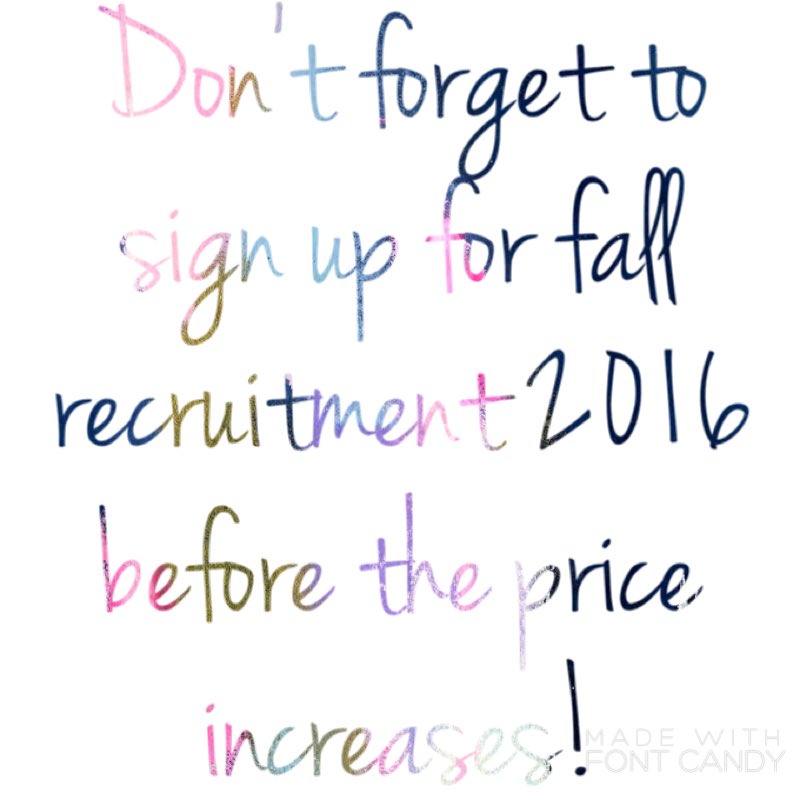 Don't forget to
sign up for fall
recruitment 2016
before the price
increases!
MADE WITH
FONT CANDY